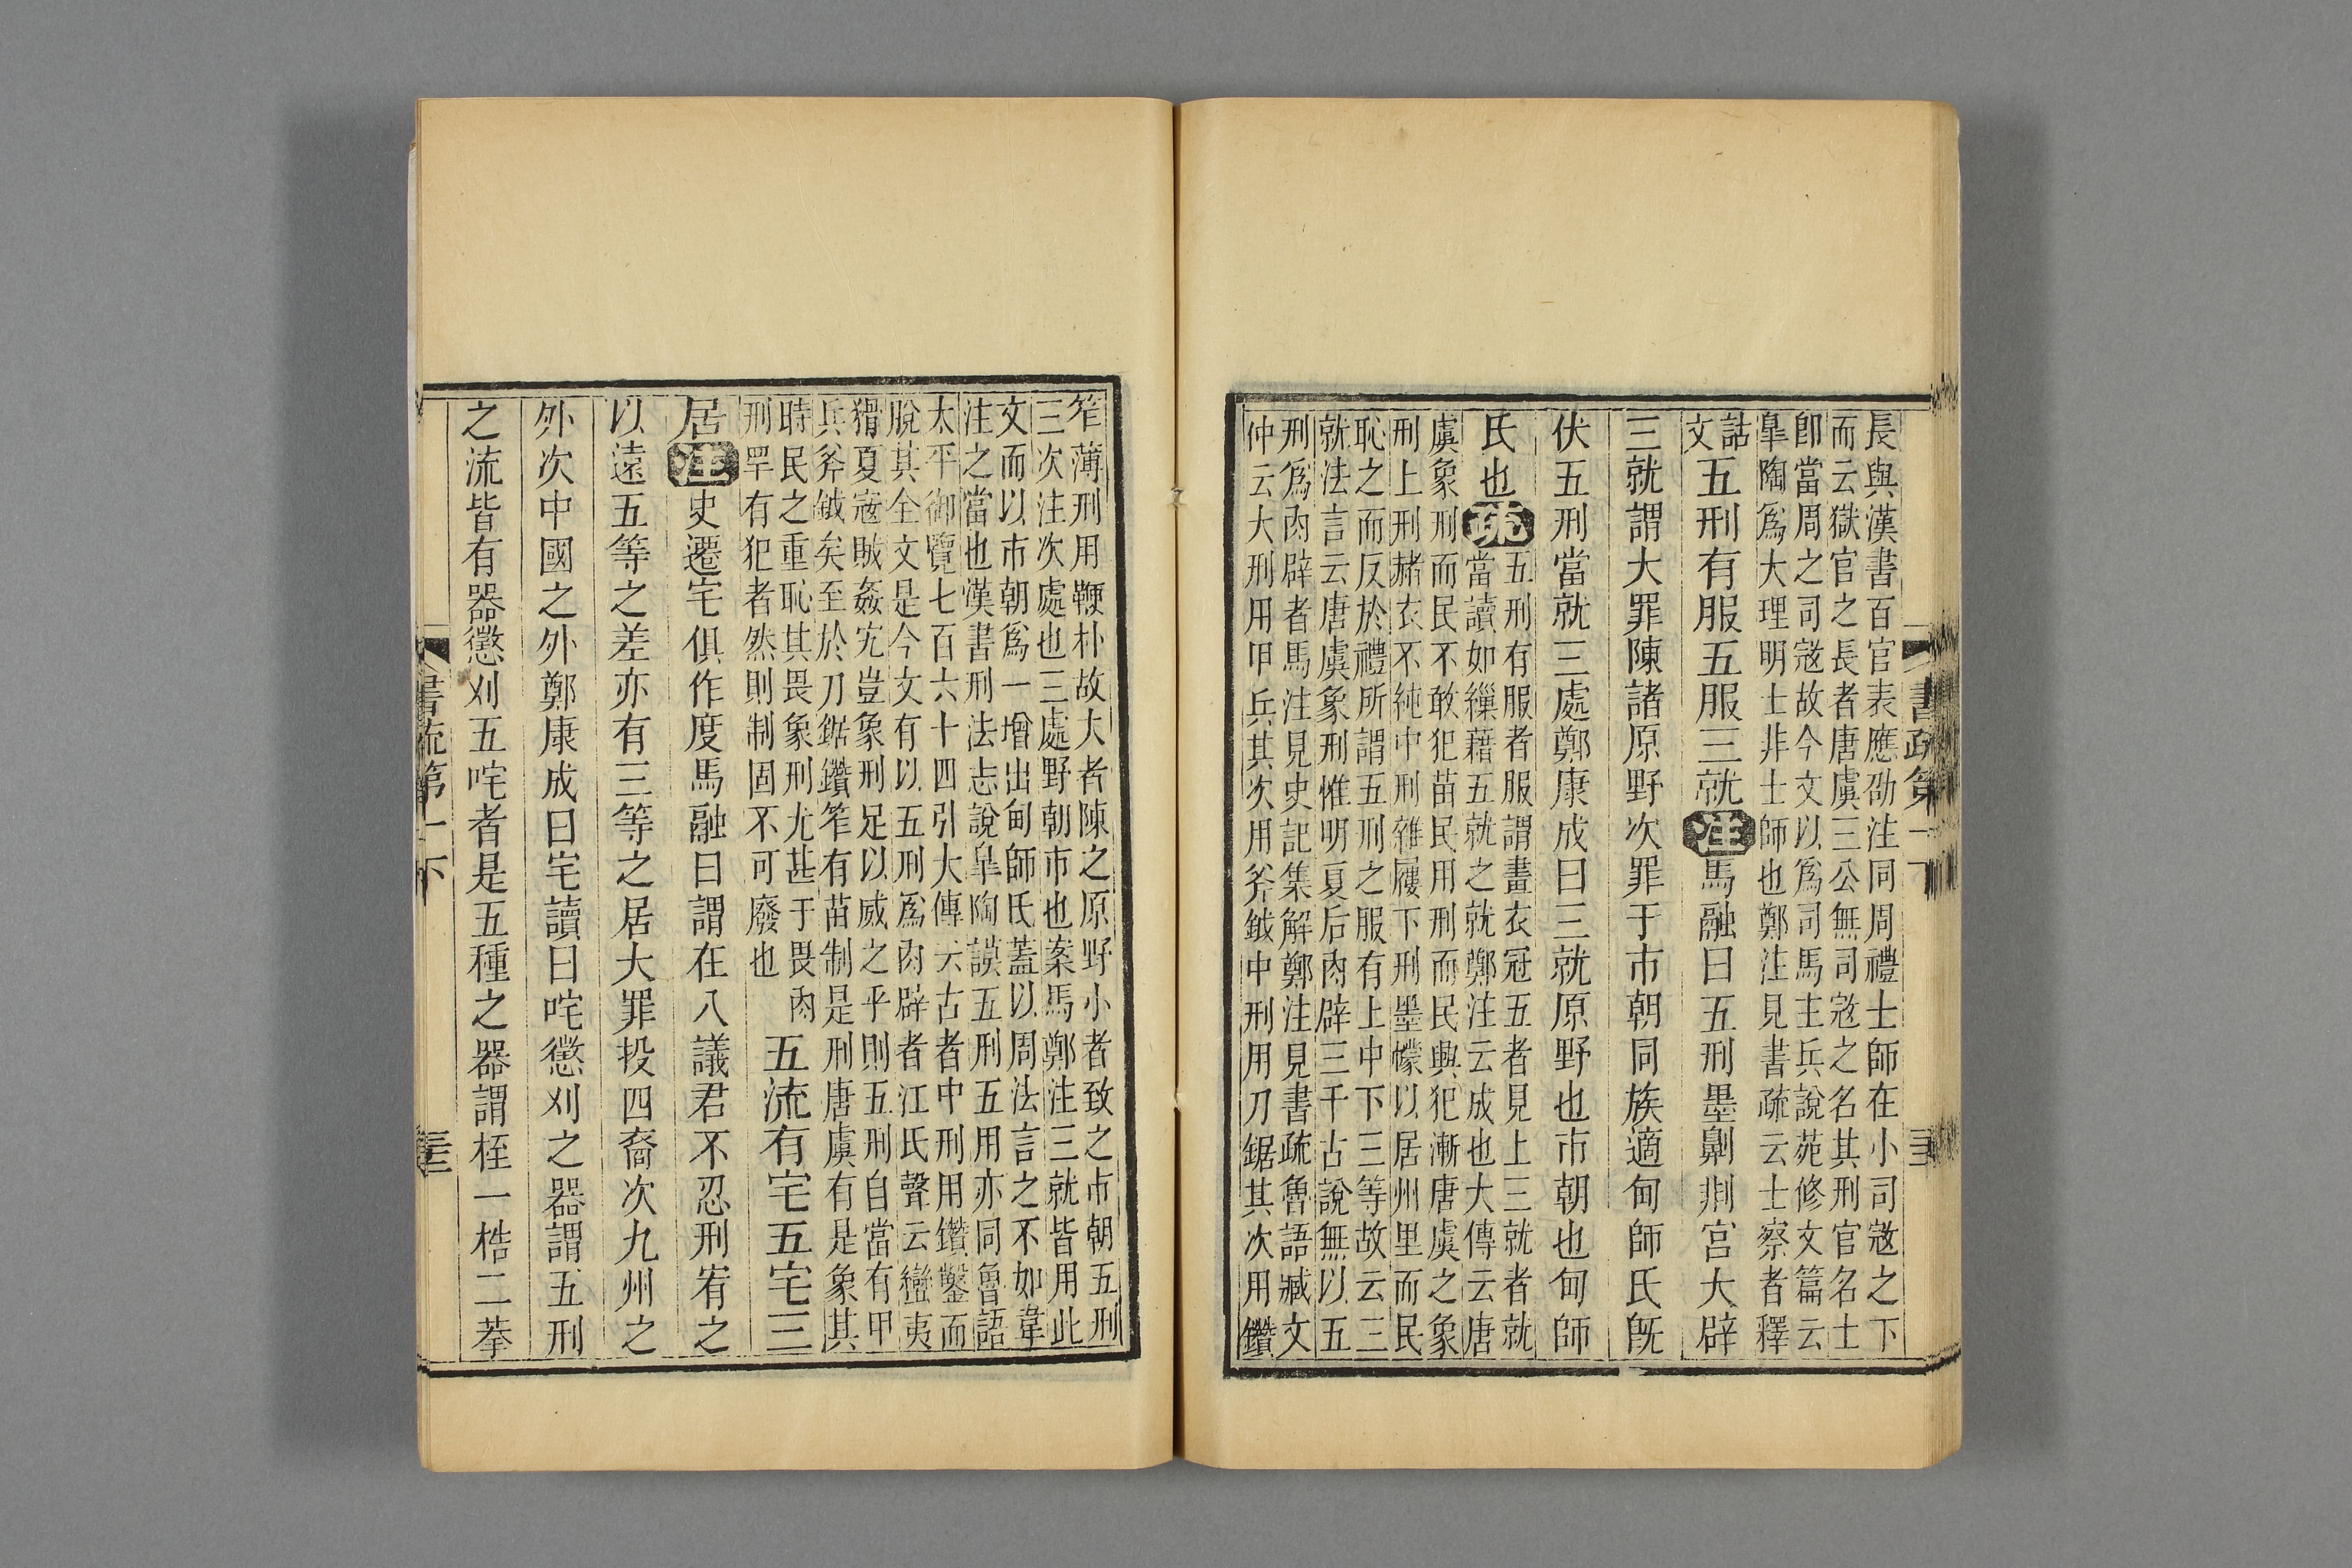 長與漢書百官表應劭注同周禮士師在小司寇之下
而云獄官之長者唐虞三公無司寇之名其刑官名士
卽當周之司寇故今文以爲司馬主兵說苑修文篇云
臯陶爲大理明士非士師也鄭注見書疏云士察者釋
詁
文
五刑有服五服三就注馬融曰五刑墨劓剕宮大辟
三就謂大罪陳諸原野次罪于市朝同族適甸師氏旣
伏五刑當就三處鄭康成曰三就原野也市朝也甸師
氏也疏
五刑有服者服謂畫衣冠五者見上三就者就
當讀如繅藉五就之就鄭注云成也大傳云唐
虞象刑而民不敢犯苗民用刑而民興犯漸唐虞之象
刑上刑赭衣不純中刑雜屨下刑墨幪以居州里而民
恥之而反於禮所謂五刑之服有上中下三等故云三
就法言云唐虞象刑惟明夏后肉辟三千古說無以五
刑爲肉辟者馬注見史記集解鄭注見書疏魯語臧文
仲云大刑用甲兵其次用斧鉞中刑用刀鋸其次用鑽
書疏第一下
三十三
笮薄刑用鞭朴故大者陳之原野小者致之市朝五刑
三次注次處也三處野朝市也案馬鄭注三就皆用此
文而以市朝爲一增出甸師氏蓋以周法言之不如韋
注之當也漢書刑法志說臯陶謨五刑五用亦同魯語
太平御覽七百六十四引大傳云古者中刑用鑽鑿而
脫其全文是今文有以五刑爲肉辟者江氏聲云蠻夷
猾夏寇賊姦宄豈象刑足以威之乎則五刑自當有甲
兵斧鉞矣至於刀鋸鑽笮有苗制是刑唐虞有是象其
時民之重恥其畏象刑尤甚于畏肉
刑罕有犯者然則制固不可廢也
五流有宅五宅三
居注史遷宅俱作度馬融曰謂在八議君不忍刑宥之
以遠五等之差亦有三等之居大罪投四裔次九州之
外次中國之外鄭康成曰宅讀曰咤懲刈之器謂五刑
之流皆有器懲刈五咤者是五種之器謂桎一梏二拲
書疏第一下
三十三